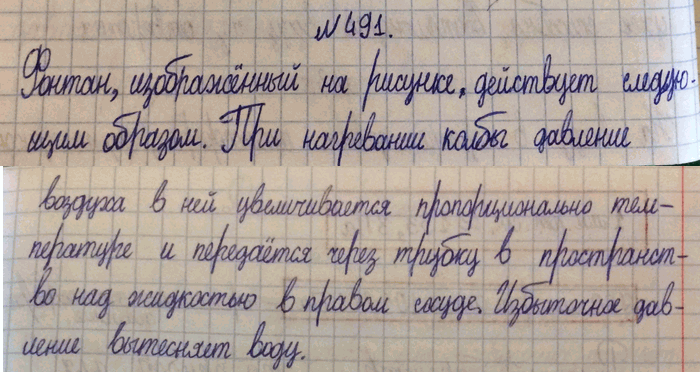 №491.
Фонтан, изображённый на рисунке, действует следую-
щим образом. При нагревании колбы давление
воздуха в ней увеличивается пропорционально тем-
пературе и передаётся через трубку в пространст-
во над жидкостью в правом сосуде. Избыточное дав-
ление вытесняет воду.